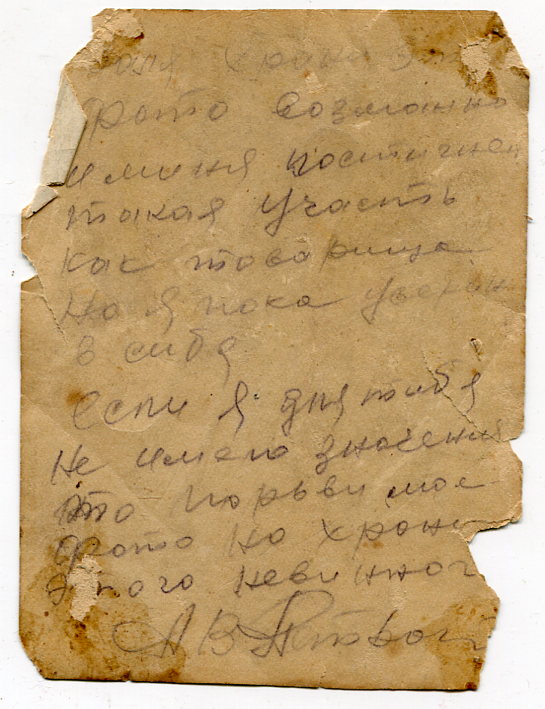 Валя храни это
фото Созманно
и миня постигнет
такая участь
Как товарища
Но я пока уверен
в сибя
если я для тибя
Не имею значения
то порьви мое
фото но храни
этого невинног